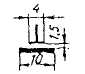 4
1,5
10